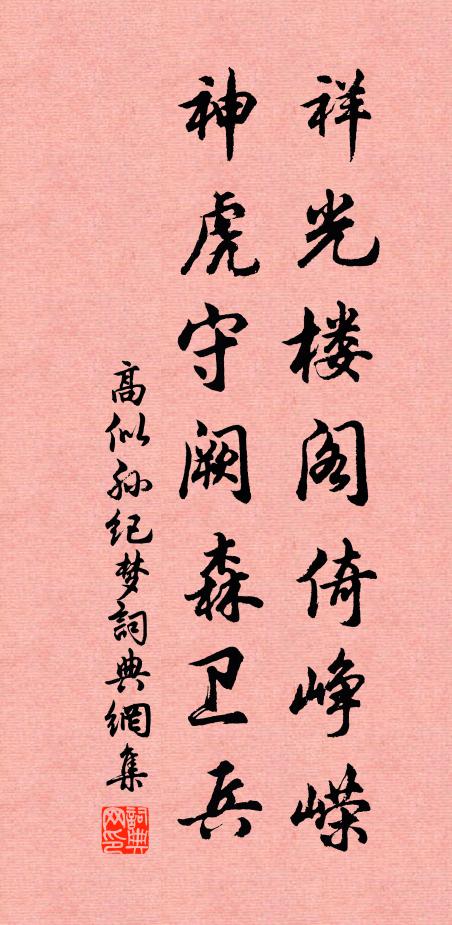 祥光楼阁倚峥嵘
神虎守阙森卫兵
高似孙纪梦詞典網集
詞典网印